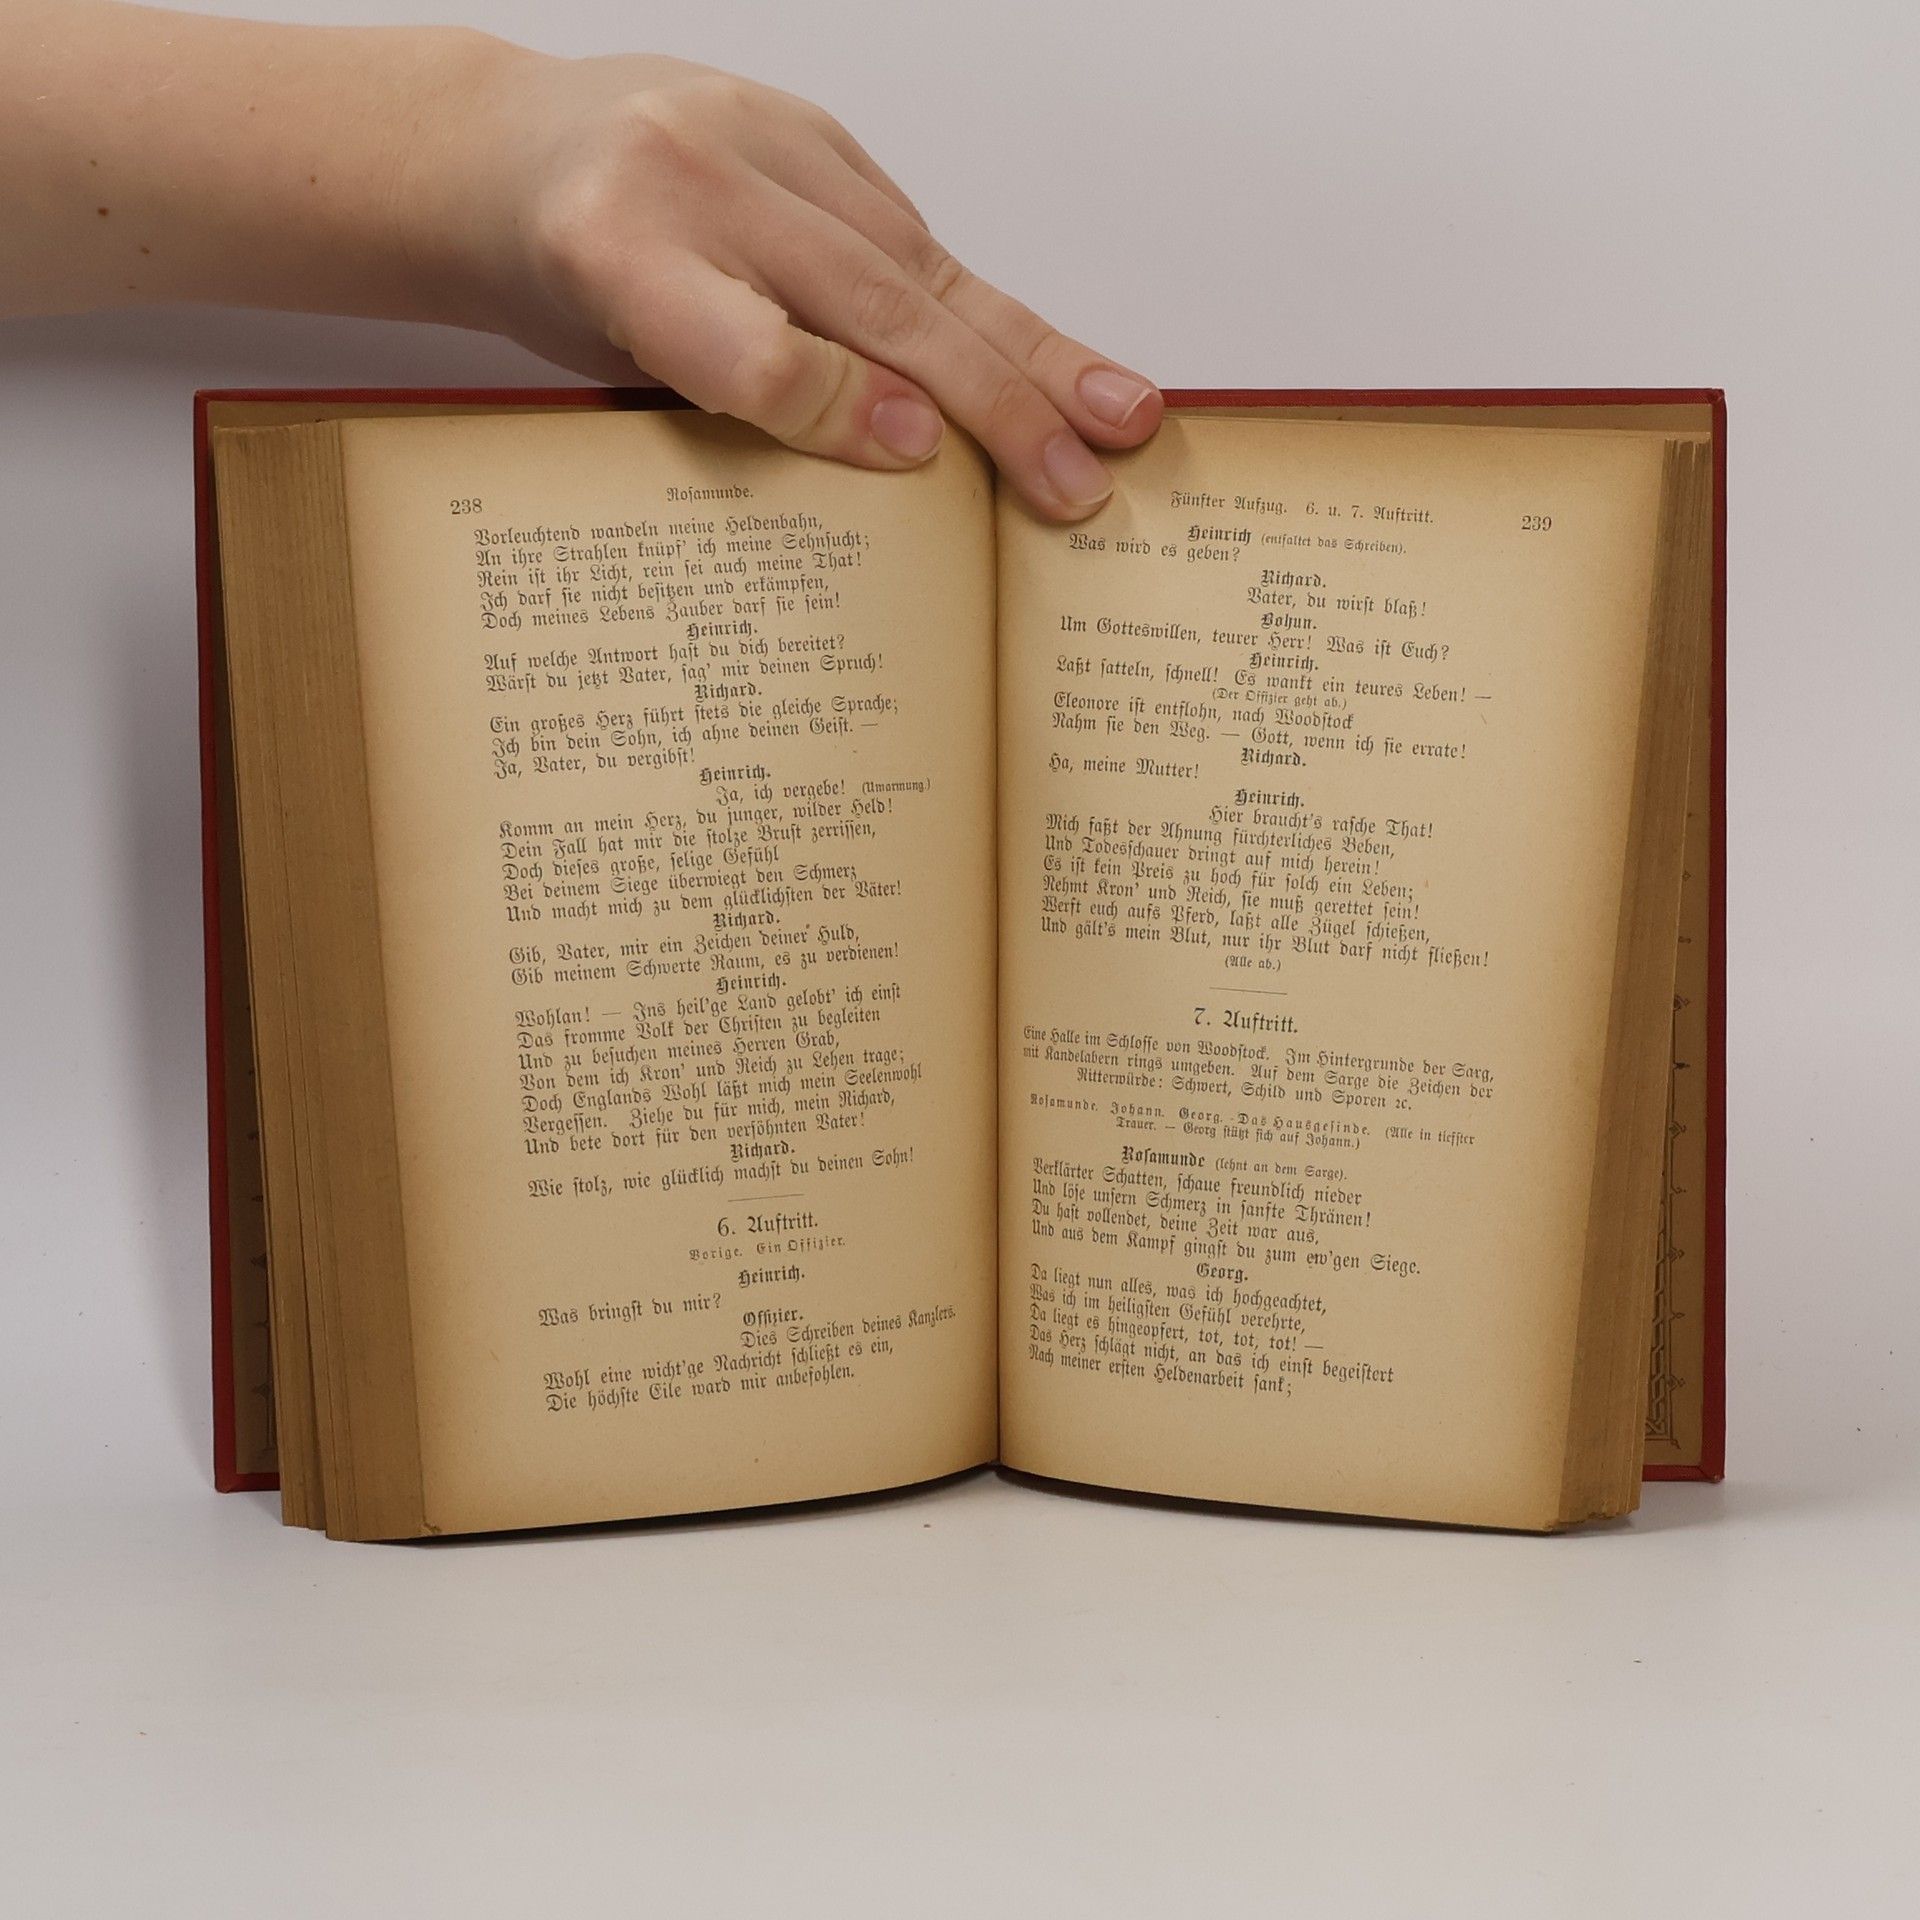 238
Rosamunde.
Vorleuchtend wandeln meine Heldenbahn,
An ihre Strahlen knüpf' ich meine Sehnsucht;
Rein ist ihr Licht, rein sei auch meine That!
Ich darf sie nicht besitzen und erkämpfen,
Doch meines Lebens Zauber darf sie sein!
Heinrich.
Auf welche Antwort hast du dich bereitet?
Wärst du jetzt Vater, sag' mir deinen Spruch!
Richard.
Ein großes Herz führt stets die gleiche Sprache;
Ich bin dein Sohn, ich ahne deinen Geist. —
Ja, Vater, du vergibst!
Heinrich.
Ja, ich vergebe! (Umarmung.)
Komm an mein Herz, du junger, wilder Held!
Dein Fall hat mir die stolze Brust zerrissen,
Doch dieses große, selige Gefühl
Bei deinem Siege überwiegt den Schmerz
Und macht mich zu dem glücklichsten der Väter!
Richard.
Gib, Vater, mir ein Zeichen deiner Huld,
Gib meinem Schwerte Raum, es zu verdienen!
Heinrich.
Wohlan! — Ins heil'ge Land gelobt' ich einst
Das fromme Volk der Christen zu begleiten
Und zu besuchen meines Herren Grab,
Von dem ich Kron' und Reich zu Lehen trage;
Doch Englands Wohl läßt mich mein Seelenwohl
Vergessen. Ziehe du für mich, mein Richard,
Und bete dort für den versöhnten Vater!
Richard.
Wie stolz, wie glücklich machst du deinen Sohn!
6. Auftritt.
Vorige. Ein Offizier.
Heinrich.
Was bringst du mir?
Offizier.
Dies Schreiben deines Kanzlers.
Wohl eine wicht'ge Nachricht schließt es ein,
Die höchste Eile ward mir anbefohlen.
Fünfter Aufzug. 6. u. 7. Auftritt.
239
Heinrich (entfaltet das Schreiben).
Was wird es geben?
Richard.
Vater, du wirst blaß!
Bohun.
Um Gotteswillen, teurer Herr! Was ist Euch?
Heinrich.
Laßt satteln, schnell! Es wankt ein teures Leben! —
(Der Offizier geht ab.)
Eleonore ist entflohn, nach Woodstock
Nahm sie den Weg. — Gott, wenn ich sie errate!
Richard.
Ha, meine Mutter!
Heinrich.
Hier braucht's rasche That!
Mich faßt der Ahnung fürchterliches Beben,
Und Todesschauer dringt auf mich herein!
Es ist kein Preis zu hoch für solch ein Leben;
Nehmt Kron' und Reich, sie muß gerettet sein!
Werft euch aufs Pferd, laßt alle Zügel schießen,
Und gält's mein Blut, nur ihr Blut darf nicht fließen!
(Alle ab.)
7. Auftritt.
Eine Halle im Schlosse von Woodstock. Im Hintergrunde der Sarg,
mit Kandelabern rings umgeben. Auf dem Sarge die Zeichen der
Ritterwürde: Schwert, Schild und Sporen ꝛc.
Rosamunde. Johann. Georg. Das Hausgesinde. (Alle in tiefster
Trauer. — Georg stützt sich auf Johann.)
Rosamunde (lehnt an dem Sarge).
Verklärter Schatten, schaue freundlich nieder
Und löse unsern Schmerz in sanfte Thränen!
Du hast vollendet, deine Zeit war aus,
Und aus dem Kampf gingst du zum ew'gen Siege.
Georg.
Da liegt nun alles, was ich hochgeachtet,
Was ich im heiligsten Gefühl verehrte,
Da liegt es hingeopfert, tot, tot, tot! —
Das Herz schlägt nicht, an das ich einst begeistert
Nach meiner ersten Heldenarbeit sank;